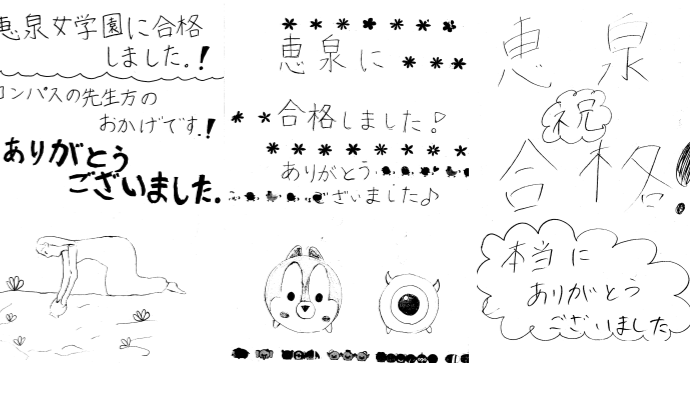 恵泉女学園に合格
しました.!
コンパスの先生方の
おかげです.!
ありがとう
ございました.
恵泉に
合格しました♪
ありがとう
ございました♪
恵泉
祝
合格!
本当に
ありがとう
ございました